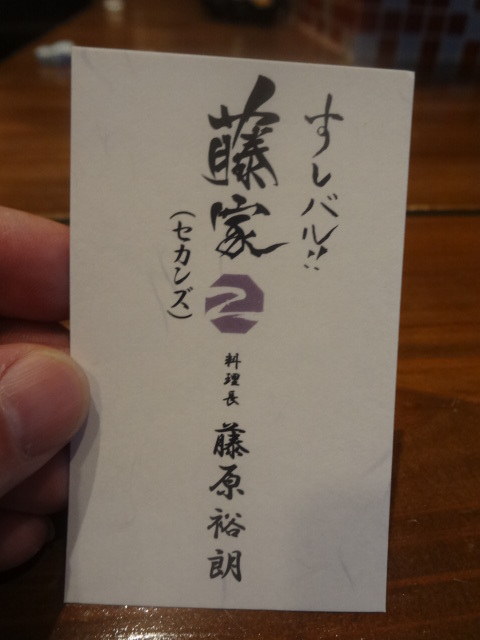 すしバル!!
藤家
2
(セカンズ)
料理長 藤原裕朗